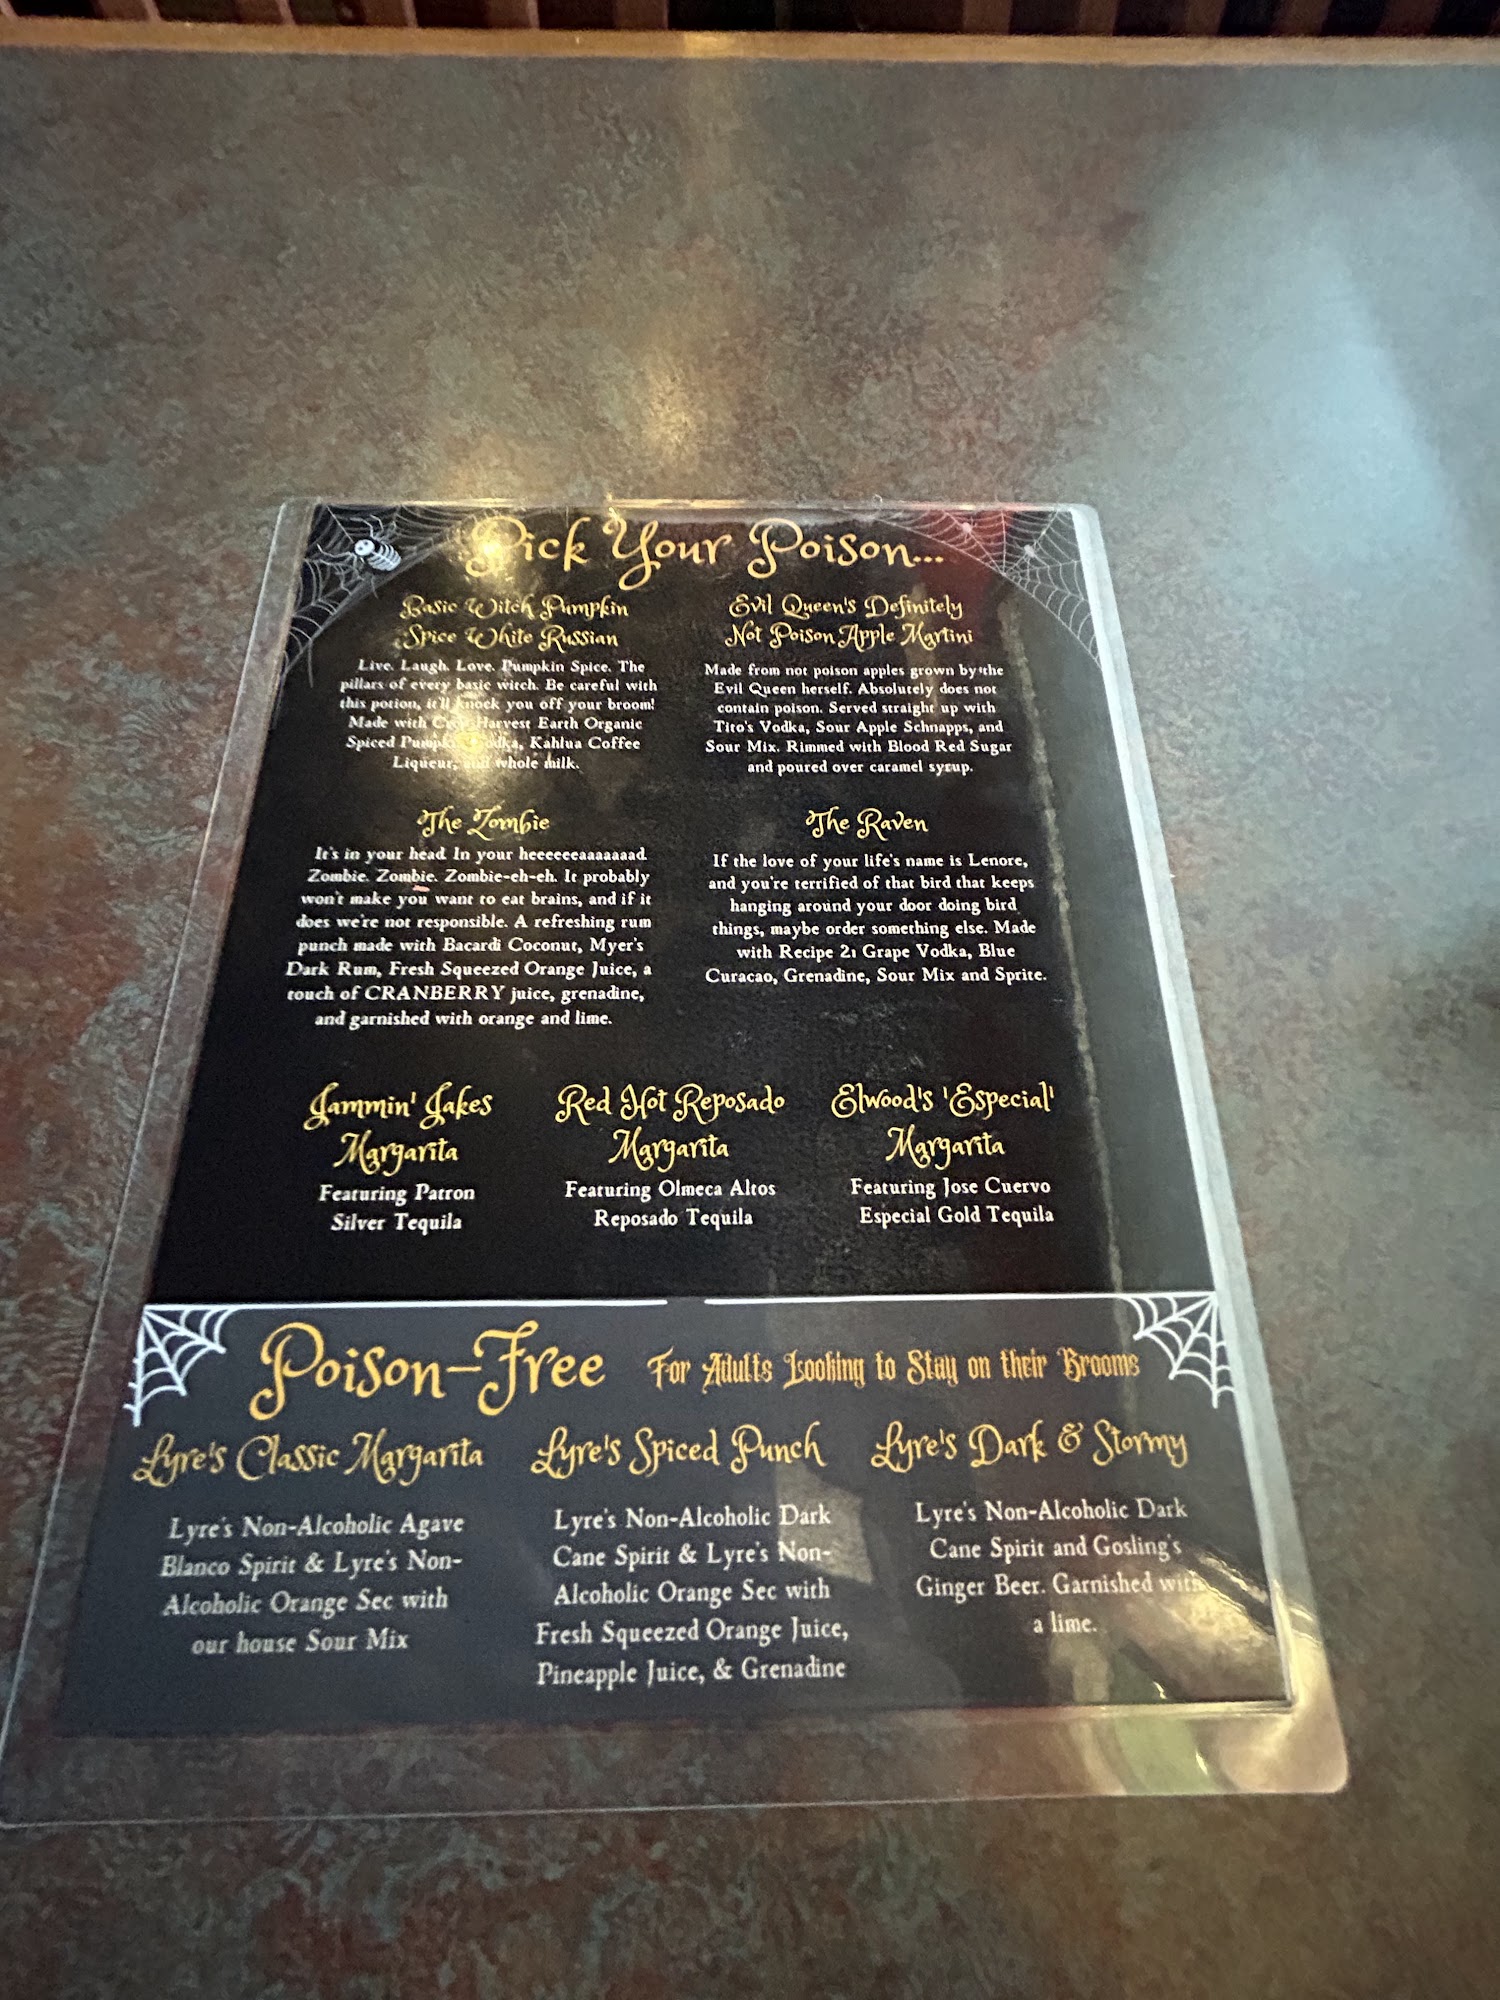 Pick Your Poison...
Basic Witch Pumpkin
Spice White Russian
Live. Laugh. Love. Pumpkin Spice. The
pillars of every basic witch. Be careful with
this potion, it'll knock you off your broom!
Made with Harvest Earth Organic
Spiced Pumpkin Vodka, Kahlua Coffee
Liqueur, and whole milk.
Evil Queen's Definitely
Not Poison Apple Martini
Made from not poison apples grown by the
Evil Queen herself. Absolutely does not
contain poison. Served straight up with
Tito's Vodka, Sour Apple Schnapps, and
Sour Mix. Rimmed with Blood Red Sugar
and poured over caramel syrup.
The Zombie
It's in your head. In your heeeeeeaaaaaaad.
Zombie. Zombie. Zombie-eh-eh. It probably
won't make you want to eat brains, and if it
does we're not responsible. A refreshing rum
punch made with Bacardi Coconut, Myer's
Dark Rum, Fresh Squeezed Orange Juice, a
touch of CRANBERRY juice, grenadine,
and garnished with orange and lime.
The Raven
If the love of your life's name is Lenore,
and you're terrified of that bird that keeps
hanging around your door doing bird
things, maybe order something else. Made
with Recipe 21 Grape Vodka, Blue
Curacao, Grenadine, Sour Mix and Sprite.
Jammin' Jakes
Margarita
Featuring Patron
Silver Tequila
Red Hot Reposado
Margarita
Featuring Olmeca Altos
Reposado Tequila
Elwood's 'Especial'
Margarita
Featuring Jose Cuervo
Especial Gold Tequila
Poison-Free For Adults Looking to Stay on their Brooms
Lyre's Classic Margarita
Lyre's Non-Alcoholic Agave
Blanco Spirit & Lyre's Non-
Alcoholic Orange Sec with
our house Sour Mix
Lyre's Spiced Punch
Lyre's Non-Alcoholic Dark
Cane Spirit & Lyre's Non-
Alcoholic Orange Sec with
Fresh Squeezed Orange Juice,
Pineapple Juice, & Grenadine
Lyre's Dark & Stormy
Lyre's Non-Alcoholic Dark
Cane Spirit and Gosling's
Ginger Beer. Garnished with
a lime.